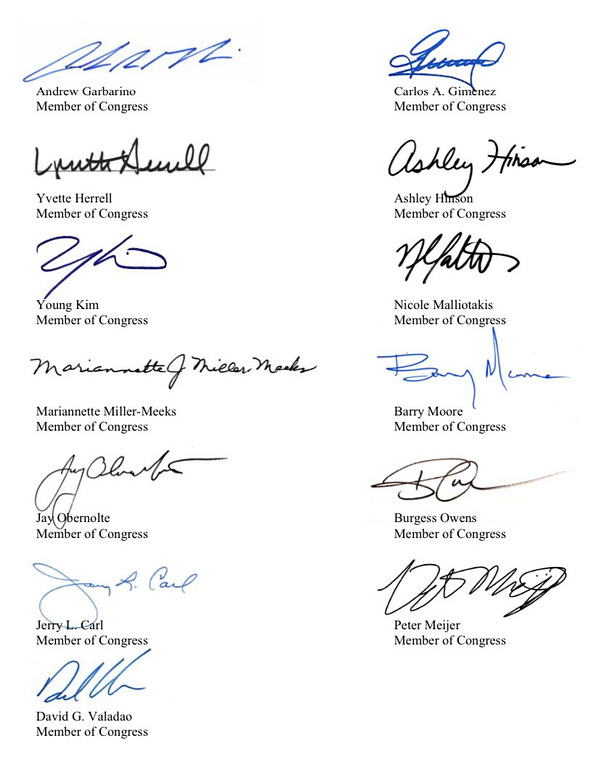 Andrew Garbarino
Member of Congress
Carlos A. Gimenez
Member of Congress
Yvette Herrell
Yvette Herrell
Member of Congress
Ashley Hinson
Ashley Hinson
Member of Congress
Young Kim
Member of Congress
Nicole Malliotakis
Member of Congress
Mariannette J Miller-Meeks
Mariannette Miller-Meeks
Member of Congress
Barry Moore
Barry Moore
Member of Congress
Jay Obernolte
Jay Obernolte
Member of Congress
Burgess Owens
Member of Congress
Jerry L. Carl
Jerry L. Carl
Member of Congress
Peter Meijer
Peter Meijer
Member of Congress
David G. Valadao
Member of Congress